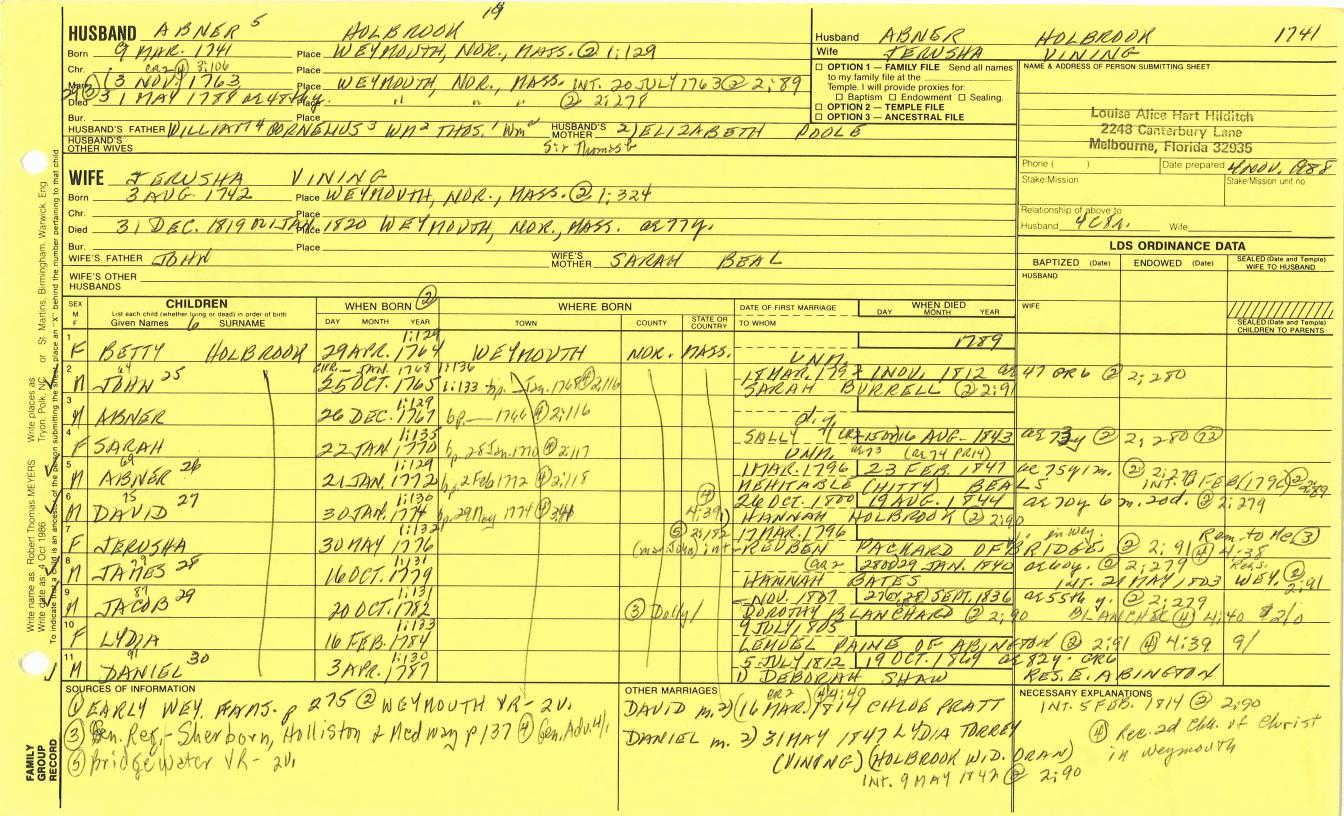 19
HUSBAND ABNER 5 HOLBROOK
Born 9 MAR. 1741 Place WEYMOUTH, NOR., MASS. ② 1:129
Chr. CR2 ④ 3:106
Marr. (3 NOV) 1763 Place WEYMOUTH, NOR., MASS. INT. 20 JULY 1763 ② 2:89
Died 31 MAY 1788 ae 48 Place " " " ② 2:278
Bur. Place
HUSBAND'S FATHER WILLIAM 4 CORNELIUS 3 WM 2 THOS. 1 Wm HUSBAND'S MOTHER 2) ELIZABETH POOLE
HUSBAND'S OTHER WIVES Sir Thomas
WIFE JERUSHA VINING
Born 3 AUG. 1742 Place WEYMOUTH, NOR., MASS. ② 1:324
Chr. Place
Died 31 DEC. 1819 or 1 JAN. 1820 Place WEYMOUTH, NOR., MASS. ae 77y.
Bur. Place
WIFE'S FATHER JOHN WIFE'S MOTHER SARAH BEAL
WIFE'S OTHER HUSBANDS
Husband ABNER HOLBROOK 1741
Wife JERUSHA VINING
☐ OPTION 1 — FAMILY FILE Send all names
to my family file at the
Temple. I will provide proxies for:
☐ Baptism ☐ Endowment ☐ Sealing.
☐ OPTION 2 — TEMPLE FILE
☐ OPTION 3 — ANCESTRAL FILE
NAME & ADDRESS OF PERSON SUBMITTING SHEET
Louise Alice Hart Hilditch
2248 Canterbury Lane
Melbourne, Florida 32935
Phone ( ) Date prepared 4 NOV. 1988
Stake/Mission Stake/Mission unit no.
Relationship of above to
Husband 4C8R. Wife
LDS ORDINANCE DATA
BAPTIZED (Date) ENDOWED (Date) SEALED (Date and Temple) WIFE TO HUSBAND
HUSBAND
WIFE
SEALED (Date and Temple) CHILDREN TO PARENTS
SEX M F CHILDREN WHEN BORN ② WHERE BORN DATE OF FIRST MARRIAGE WHEN DIED
List each child (whether living or dead) in order of birth
Given Names 6 SURNAME DAY MONTH YEAR TOWN COUNTY STATE OR COUNTRY TO WHOM DAY MONTH YEAR
1 F BETTY HOLBROOK 29 APR. 1764 1:129 WEYMOUTH NOR. MASS. UNM. 1789
2 M JOHN 25 25 OCT. 1765 1:133 CHR— JAN. 1768 1:136 bp. Jan. 1768 ④ 2:116 18 MAR. 1792 1 NOV. 1812 ae 47 GR6 ② 2:280
SARAH BURRELL ② 2:91
3 M ABNER 26 DEC. 1767 1:129 bp. — 1766 ④ 2:116 d.y.
4 F SARAH 22 JAN 1770 1:135 bp. 28 Jan. 1770 ④ 2:117 SALLY 15 or 16 AUG. 1843 ae 73y ② 2:280
UNM. ae 73 (ae 74 PR14)
5 M ABNER 26 21 JAN. 1772 1:129 bp. 2 Feb 1772 ④ 2:118 1 MAR. 1796 23 FEB. 1847 ae 75y 1m. ② 2:279
MEHITABLE (HITTY) BEALS INT. 6 FEB (1796) ② 2:89
6 M DAVID 27 30 JAN. 1774 1:130 bp. 29 May 1774 ④ 26 OCT. 1800 19 AUG. 1844 ae 70y 6 m. 20d. ② 2:279
HANNAH HOLBROOK ② 2:90
7 F JERUSHA 30 MAY 1776 1:132 ④ 4:39 ⑤ 2:182 (mar. John) int- 17 MAR. 1796 in Wey. Rem. to Me ③
REUBEN PACKARD OF BRIDGE. ② 2:91 ④ 4:38
8 M JAMES 28 16 OCT. 1779 1:131 (GR2 28 OR 29 JAN. 1840 ae 60y. ② 2:279
HANNAH BATES INT. 21 MAY 1803 WEY. ② 2:91
9 M JACOB 29 20 OCT. 1782 1:131 ③ Dolly/ NOV. 1807 27 or 28 SEPT. 1836 ae 55th y. ② 2:279
DOROTHY BLANCHARD ② 2:90 BLANCHER ④ 4:40
10 F LYDIA 16 FEB. 1784 1:133 9 JULY 1805
LEMUEL PAINE OF ABINGTON ② 2:91 ④ 4:39 9/
11 M DANIEL 30 3 APR. 1787 1:130 5 JULY 1812 19 OCT. 1869 ae 82y. GR6
1) DEBORAH SHAW RES. E. ABINGTON
SOURCES OF INFORMATION
① EARLY WEY. FAMS. p 275 ② WEYMOUTH VR- 2v.
③ Gen. Reg.- Sherborn, Holliston & Medway p 137 ④ Gen. Adv. 4/1
⑤ Bridgewater VR- 2v.
OTHER MARRIAGES
GR2 ④ 4:40
DAVID m. 2) (16 MAR.) 1814 CHLOE PRATT
DANIEL m. 2) 31 MAY 1847 LYDIA TORREY
(VINING) (HOLBROOK W.D. ORAN)
INT. 9 MAY 1847 ② 2:90
NECESSARY EXPLANATIONS
INT. 5 FEB. 1814 ② 2:90
④ Rec. 2d Chh. of Christ
in Weymouth
FAMILY GROUP RECORD
Write name as: Robert Thomas MEYERS Write places as: Tryon, Polk, NC or St. Martins, Birmingham, Warwick, Eng
Write date as: 4 Oct 1986 To indicate that a child is an ancestor of the person submitting the sheet, place an "X" behind the number pertaining to that child